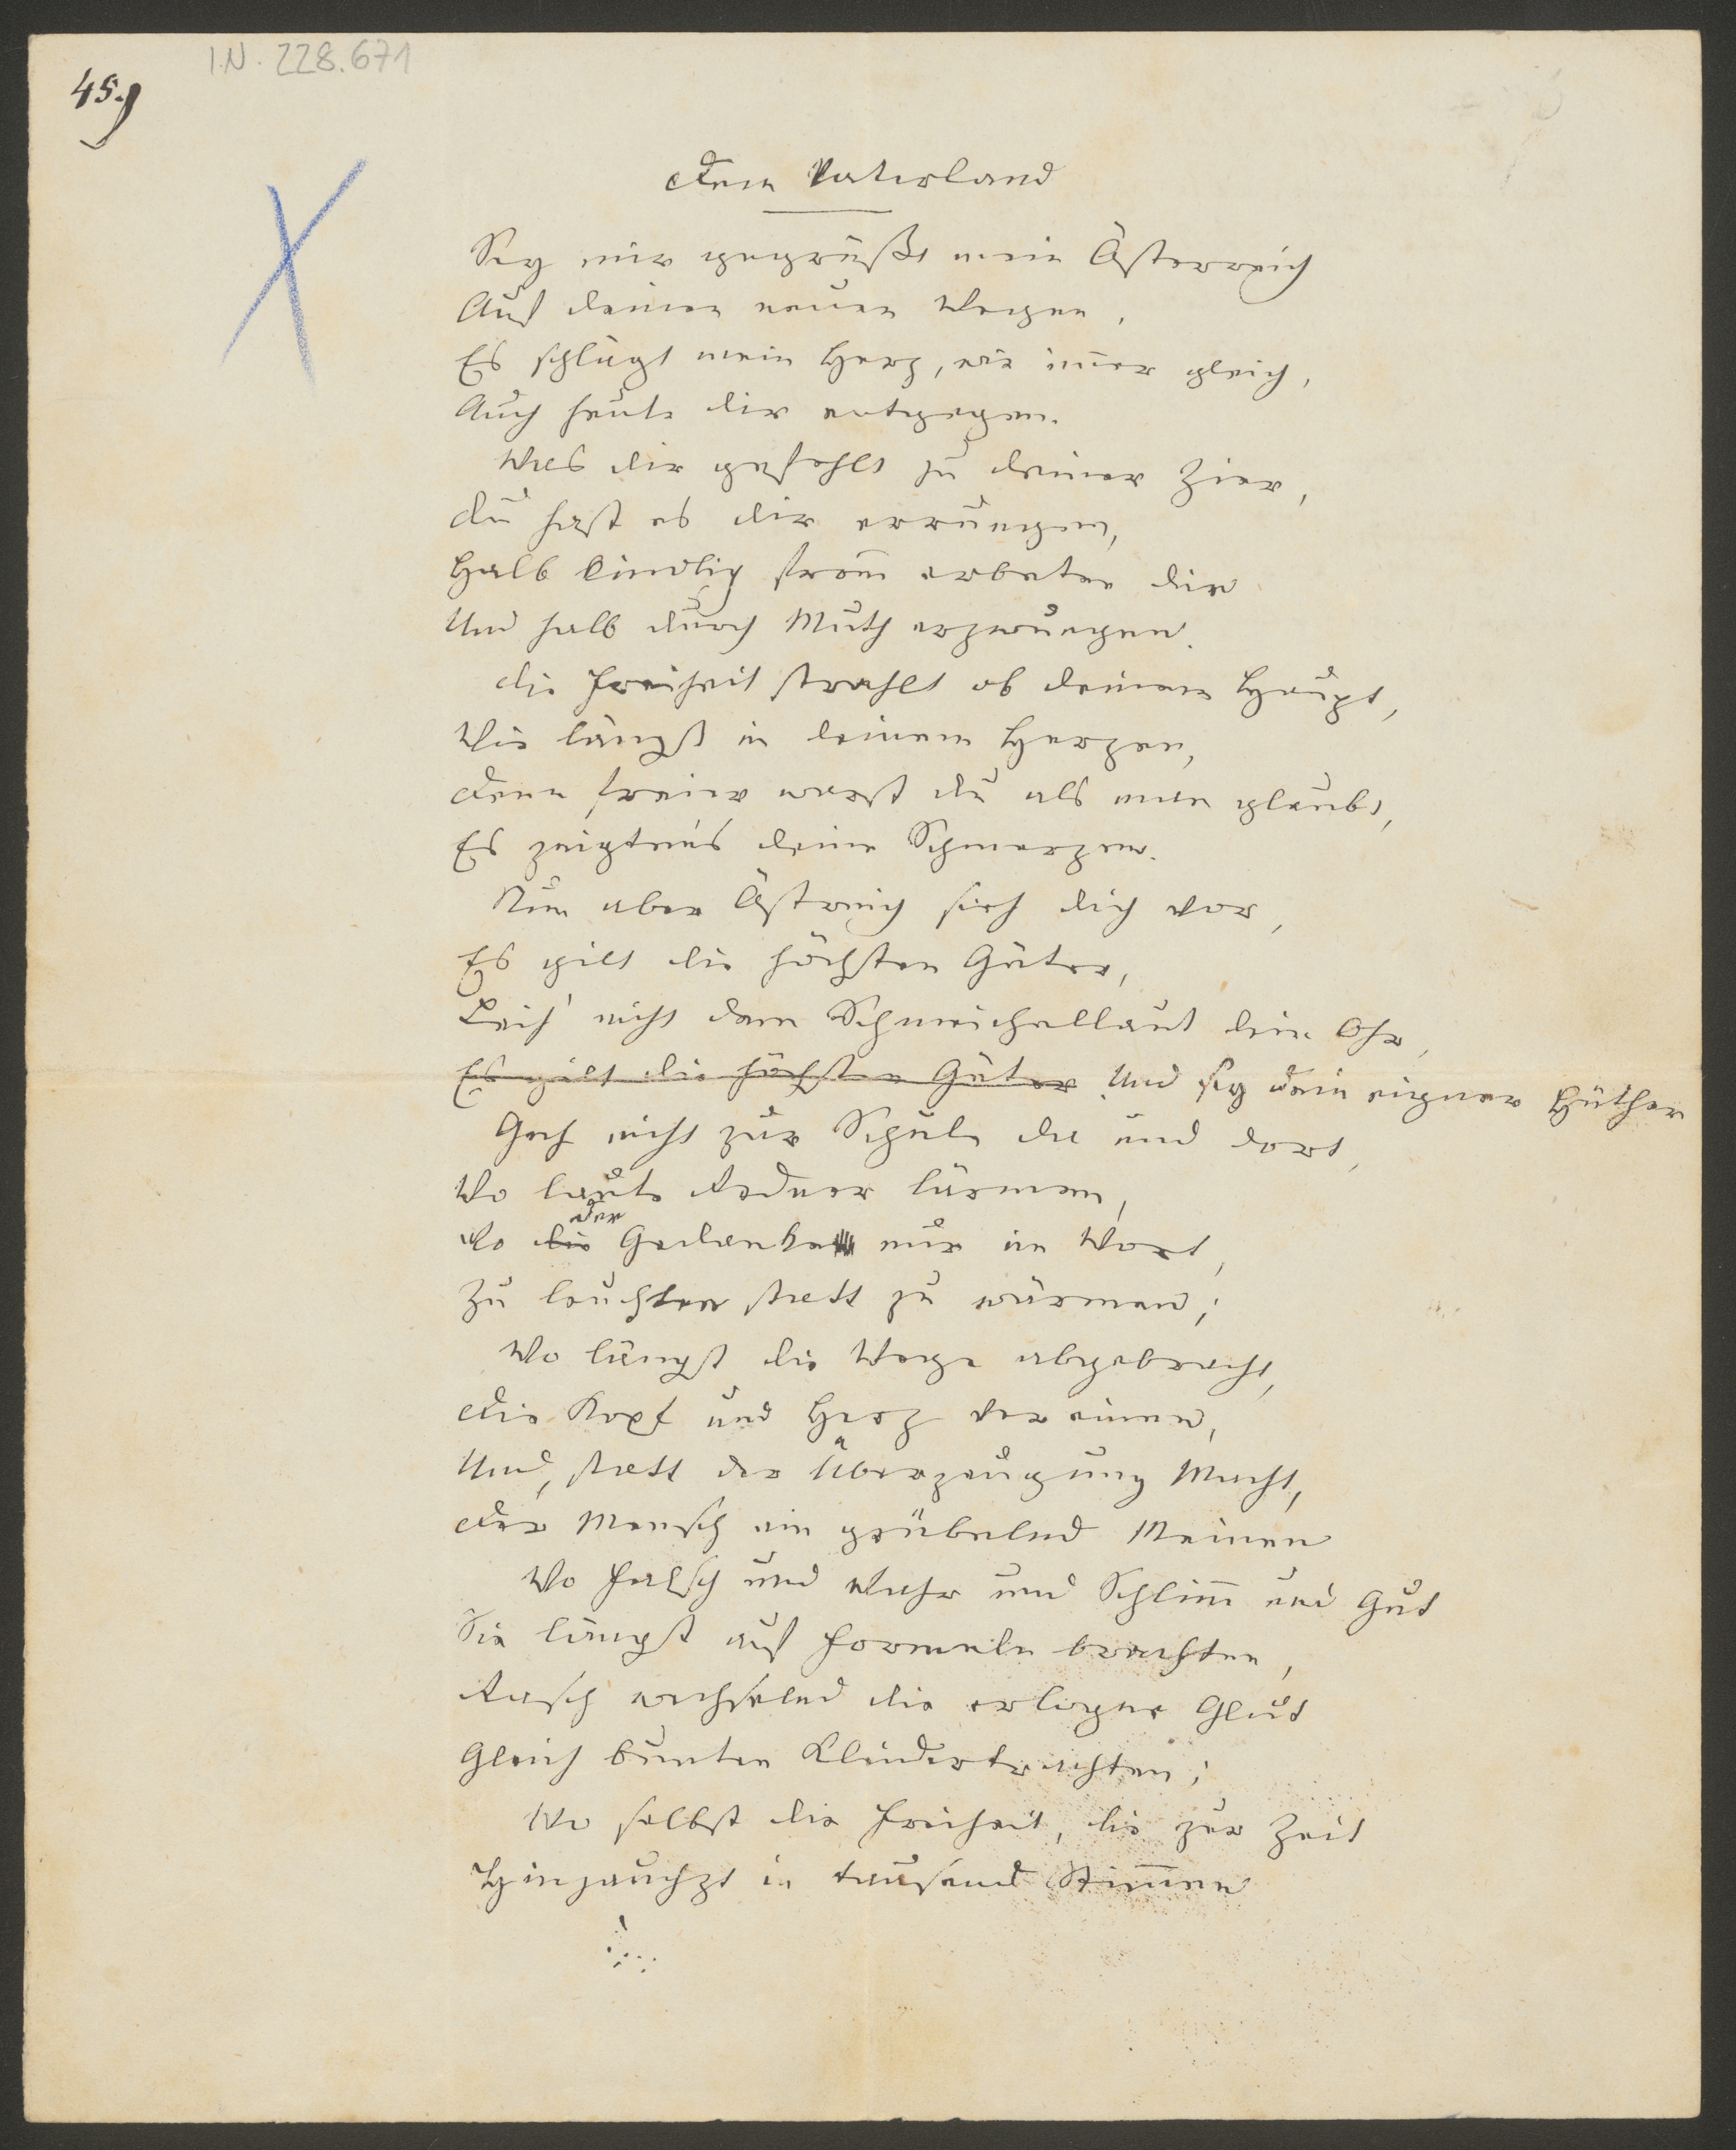 I.N. 228.671
45.)
Dem Vaterland
Sey mir gegrüßt mein Österreich
Auf deinen neuen Wegen,
Es schlägt mein Herz, wie im̄er gleich,
Auch heute dir entgegen.
Was dir gefehlt zu deiner Zier,
Du hast es dir errungen,
Halb kindlich from̄ erbeten dir
Und halb durch Muth erzwungen.
Die Freiheit strahlt ob deinem Haupt,
Wie längst in deinem Herzen,
Denn freier warst du als man glaubt,
Es zeigten's deine Schmerzen.
Nun aber Östreich sieh dich vor,
Es gilt die höchsten Güter,
Leih' nicht dem Schmeichellaut dein Ohr,
Es gilt die höchsten Güter Und sey dein eigner Hüther
Geh nicht zur Schule da und dort,
Wo laute Redner lärmen,
der
Wo die Gedanke nur im Wort,
Zu leuchten statt zu wärmen;
Wo längst die Wege abgebracht,
Die Kopf und Herz vereinen,
Und, statt der Überzeugung Macht,
Der Mensch ein grübelnd Meinen
Wo Falsch und Wahr und Schlim̄ und Gut
Sie längst auf Formeln brachten,
Rasch wechselnd die erlogne Glut
Gleich bunten Kleidertrachten;
Wo selbst die Freiheit, die zur Zeit
Hinjauchzt in tausend Stim̄en